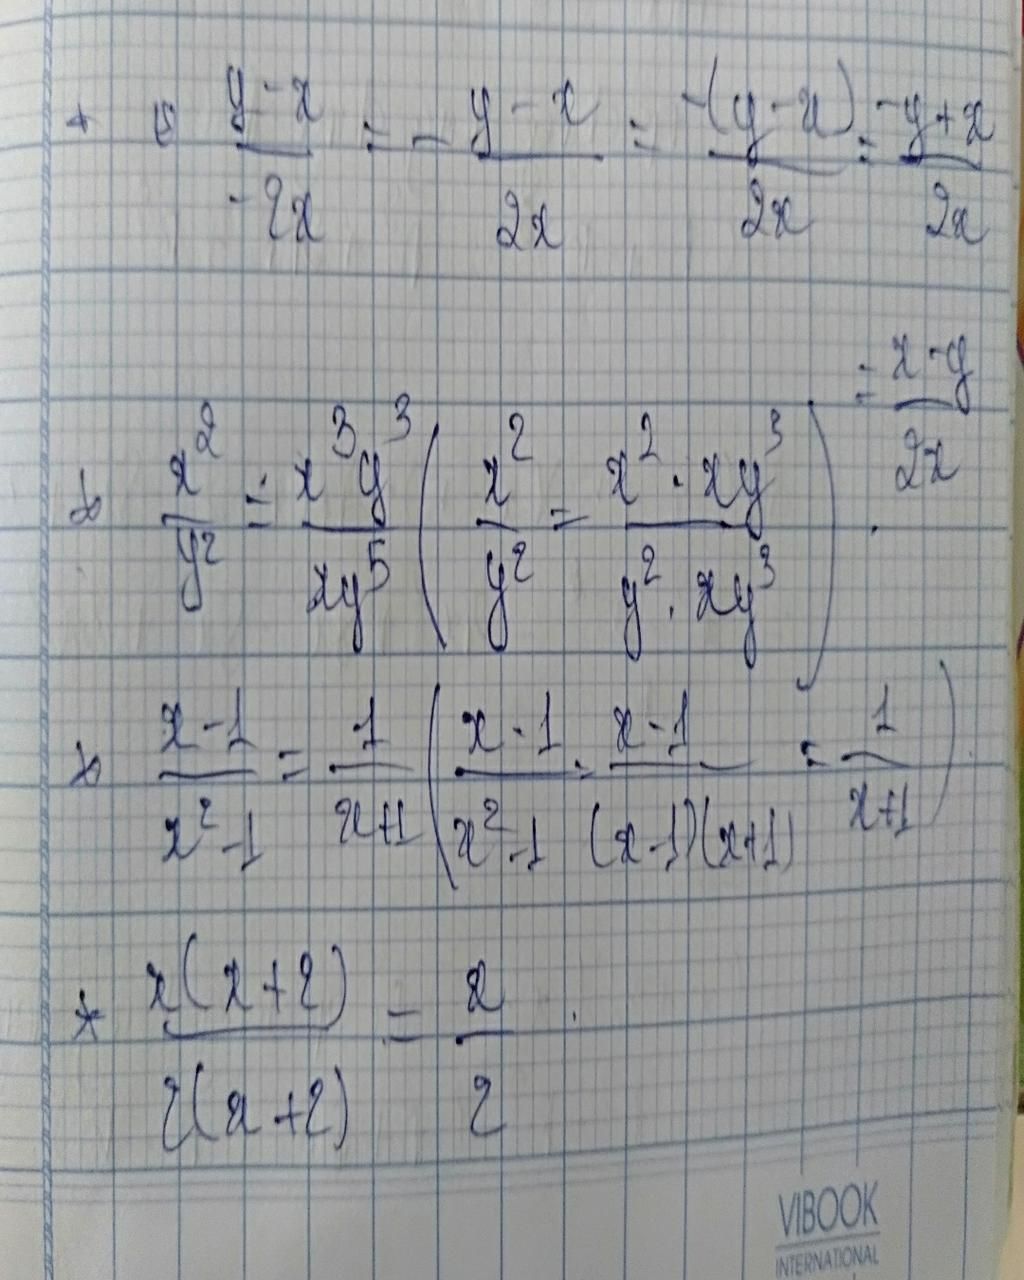 * c) (y - x)/(-2x) = - (y - x)/(2x) = (-(y - x))/(2x) = (-y + x)/(2x)
= (x - y)/(2x)
* x²/y² = x³y³/xy⁵ ( x²/y² = (x² · xy³)/(y² · xy³) ) .
* (x - 1)/(x² - 1) = 1/(x + 1) ( (x - 1)/(x² - 1) = (x - 1)/((x - 1)(x + 1)) = 1/(x + 1) ) .
* x(x + 2)/2(x + 2) = x/2 .
VIBOOK
INTERNATIONAL